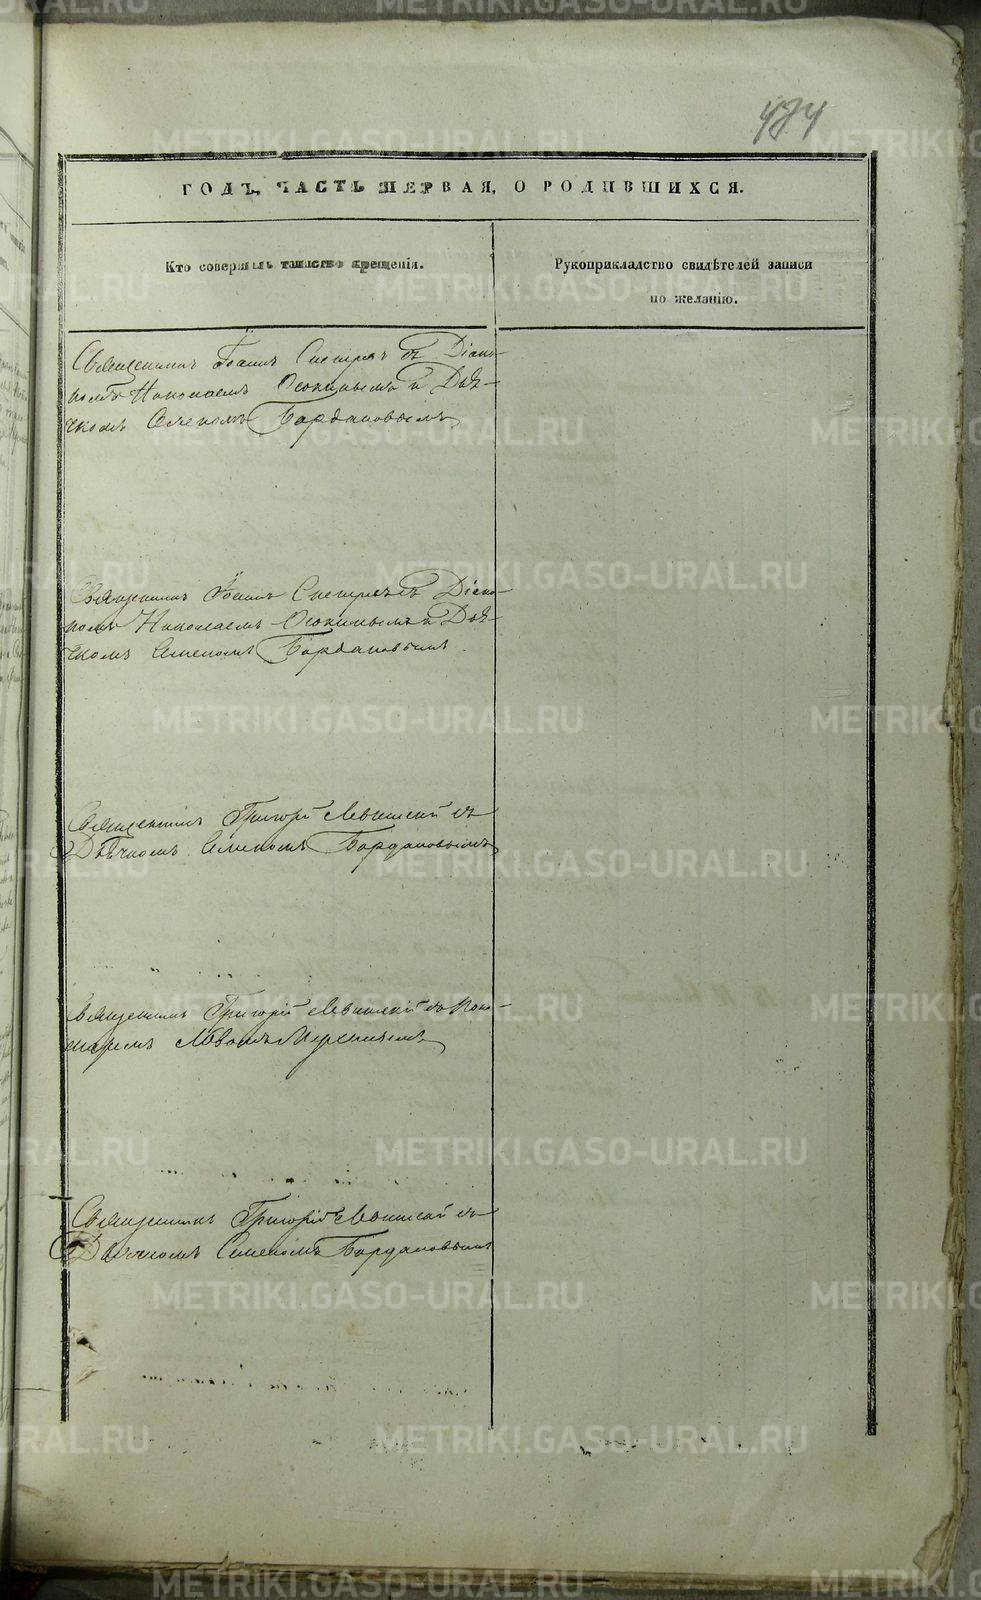 METRIKI.GASO-URAL.RU
484
ГОДЪ, ЧАСТЬ ПЕРВАЯ, О РОДИВШИХСЯ.
Кто совершалъ таинство крещенія.
Рукоприкладство свидѣтелей записи
по желанію.
Священникъ Іоаннъ съ Діако-
номъ Николаемъ Осокинымъ и Дья-
чкомъ Семеномъ Бордановымъ
Священникъ Іоаннъ съ Діако-
номъ Николаемъ Осокинымъ и Дья-
чкомъ Семеномъ Бордановымъ
Священникъ Григорій Левитскій съ
Дьячкомъ Семеномъ Бордановымъ
Священникъ Григорій Левитскій съ Поно-
маремъ
Священникъ Григорій Левитскій съ
Дьячкомъ Семеномъ Бордановымъ